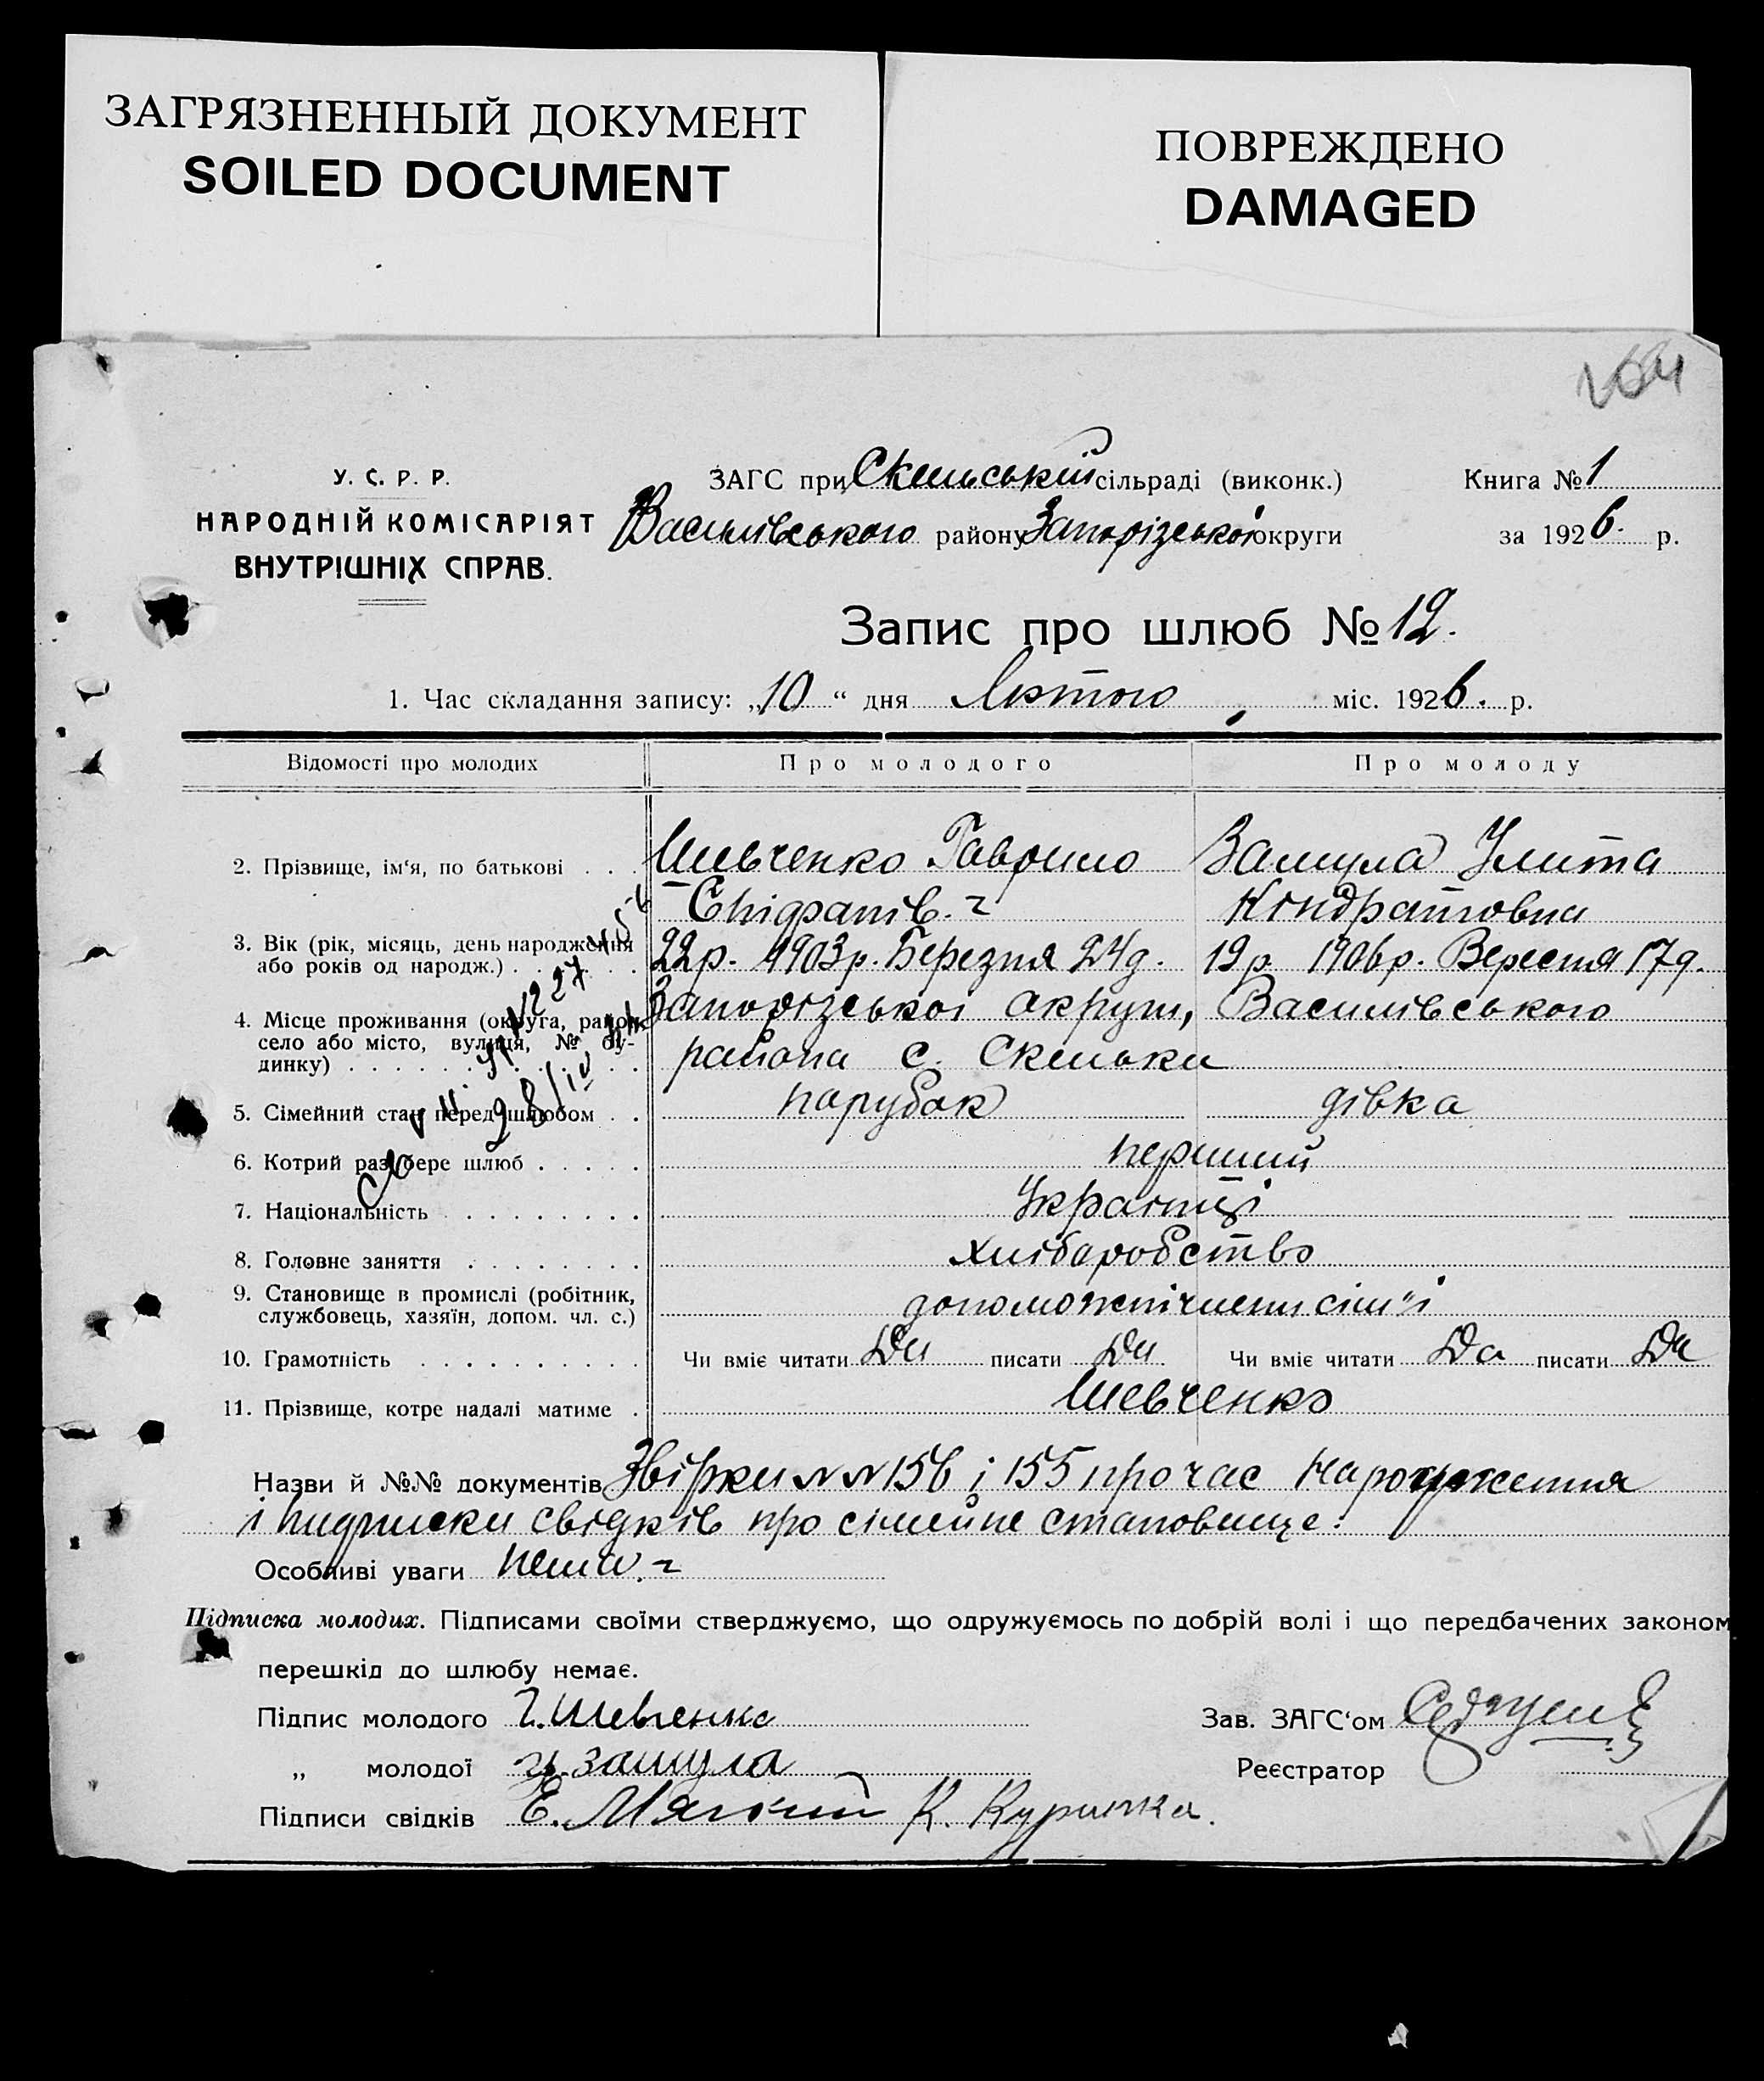 ЗАГРЯЗНЕННЫЙ ДОКУМЕНТ
SOILED DOCUMENT
ПОВРЕЖДЕНО
DAMAGED
У. С. Р. Р.
НАРОДНІЙ КОМІСАРІЯТ
ВНУТРІШНІХ СПРАВ.
ЗАГС при Скельській сільраді (виконк.)
Василівського району Запорізької округи
Книга № 1
за 1926. р.
Запис про шлюб № 12.
1. Час складання запису: „10“ дня Лютого міс. 1926. р.
Відомості про молодих Про молодого Про молоду
2. Прізвище, ім‘я, по батькові . . . Шевченко Гаврило Замула Улита
Кіндратовна
3. Вік (рік, місяць, день народження 22р. 1903р. Березня 24д. 19р 1906р. Вересня 17д.
або років од народж.) . . . . . .
4. Місце проживання (округа, район Запорізької округи, Василівського
село або місто, вулиця, № бу-
динку) . . . . . . . . . района с. Скельки
5. Сімейний стан перед шлюбом . . парубок дівка
6. Котрий раз бере шлюб . . . . . перший
7. Національність . . . . . . . . . Українці
8. Головне заняття . . . . . . . . хліборобство
9. Становище в промислі (робітник,
службовець, хазяїн, допом. чл. с.) сім"ї
10. Грамотність . . . . . . . . . . Чи вміє читати Да писати Да Чи вміє читати Да писати Да
11. Прізвище, котре надалі матиме . Шевченко
Назви й №№ документів Звірки №№ 156 і 155 про час народження
і підписки свідків про сімейне становище.
Особливі уваги нема.
Підписка молодих. Підписами своїми стверджуємо, що одружуємось по добрій волі і що передбачених законом
перешкід до шлюбу немає.
Підпис молодого Г. Шевченко
„ молодої У. Замула
Підписи свідків Е. Мягкий К. Курилка.
Зав. ЗАГС‘ом
Реєстратор